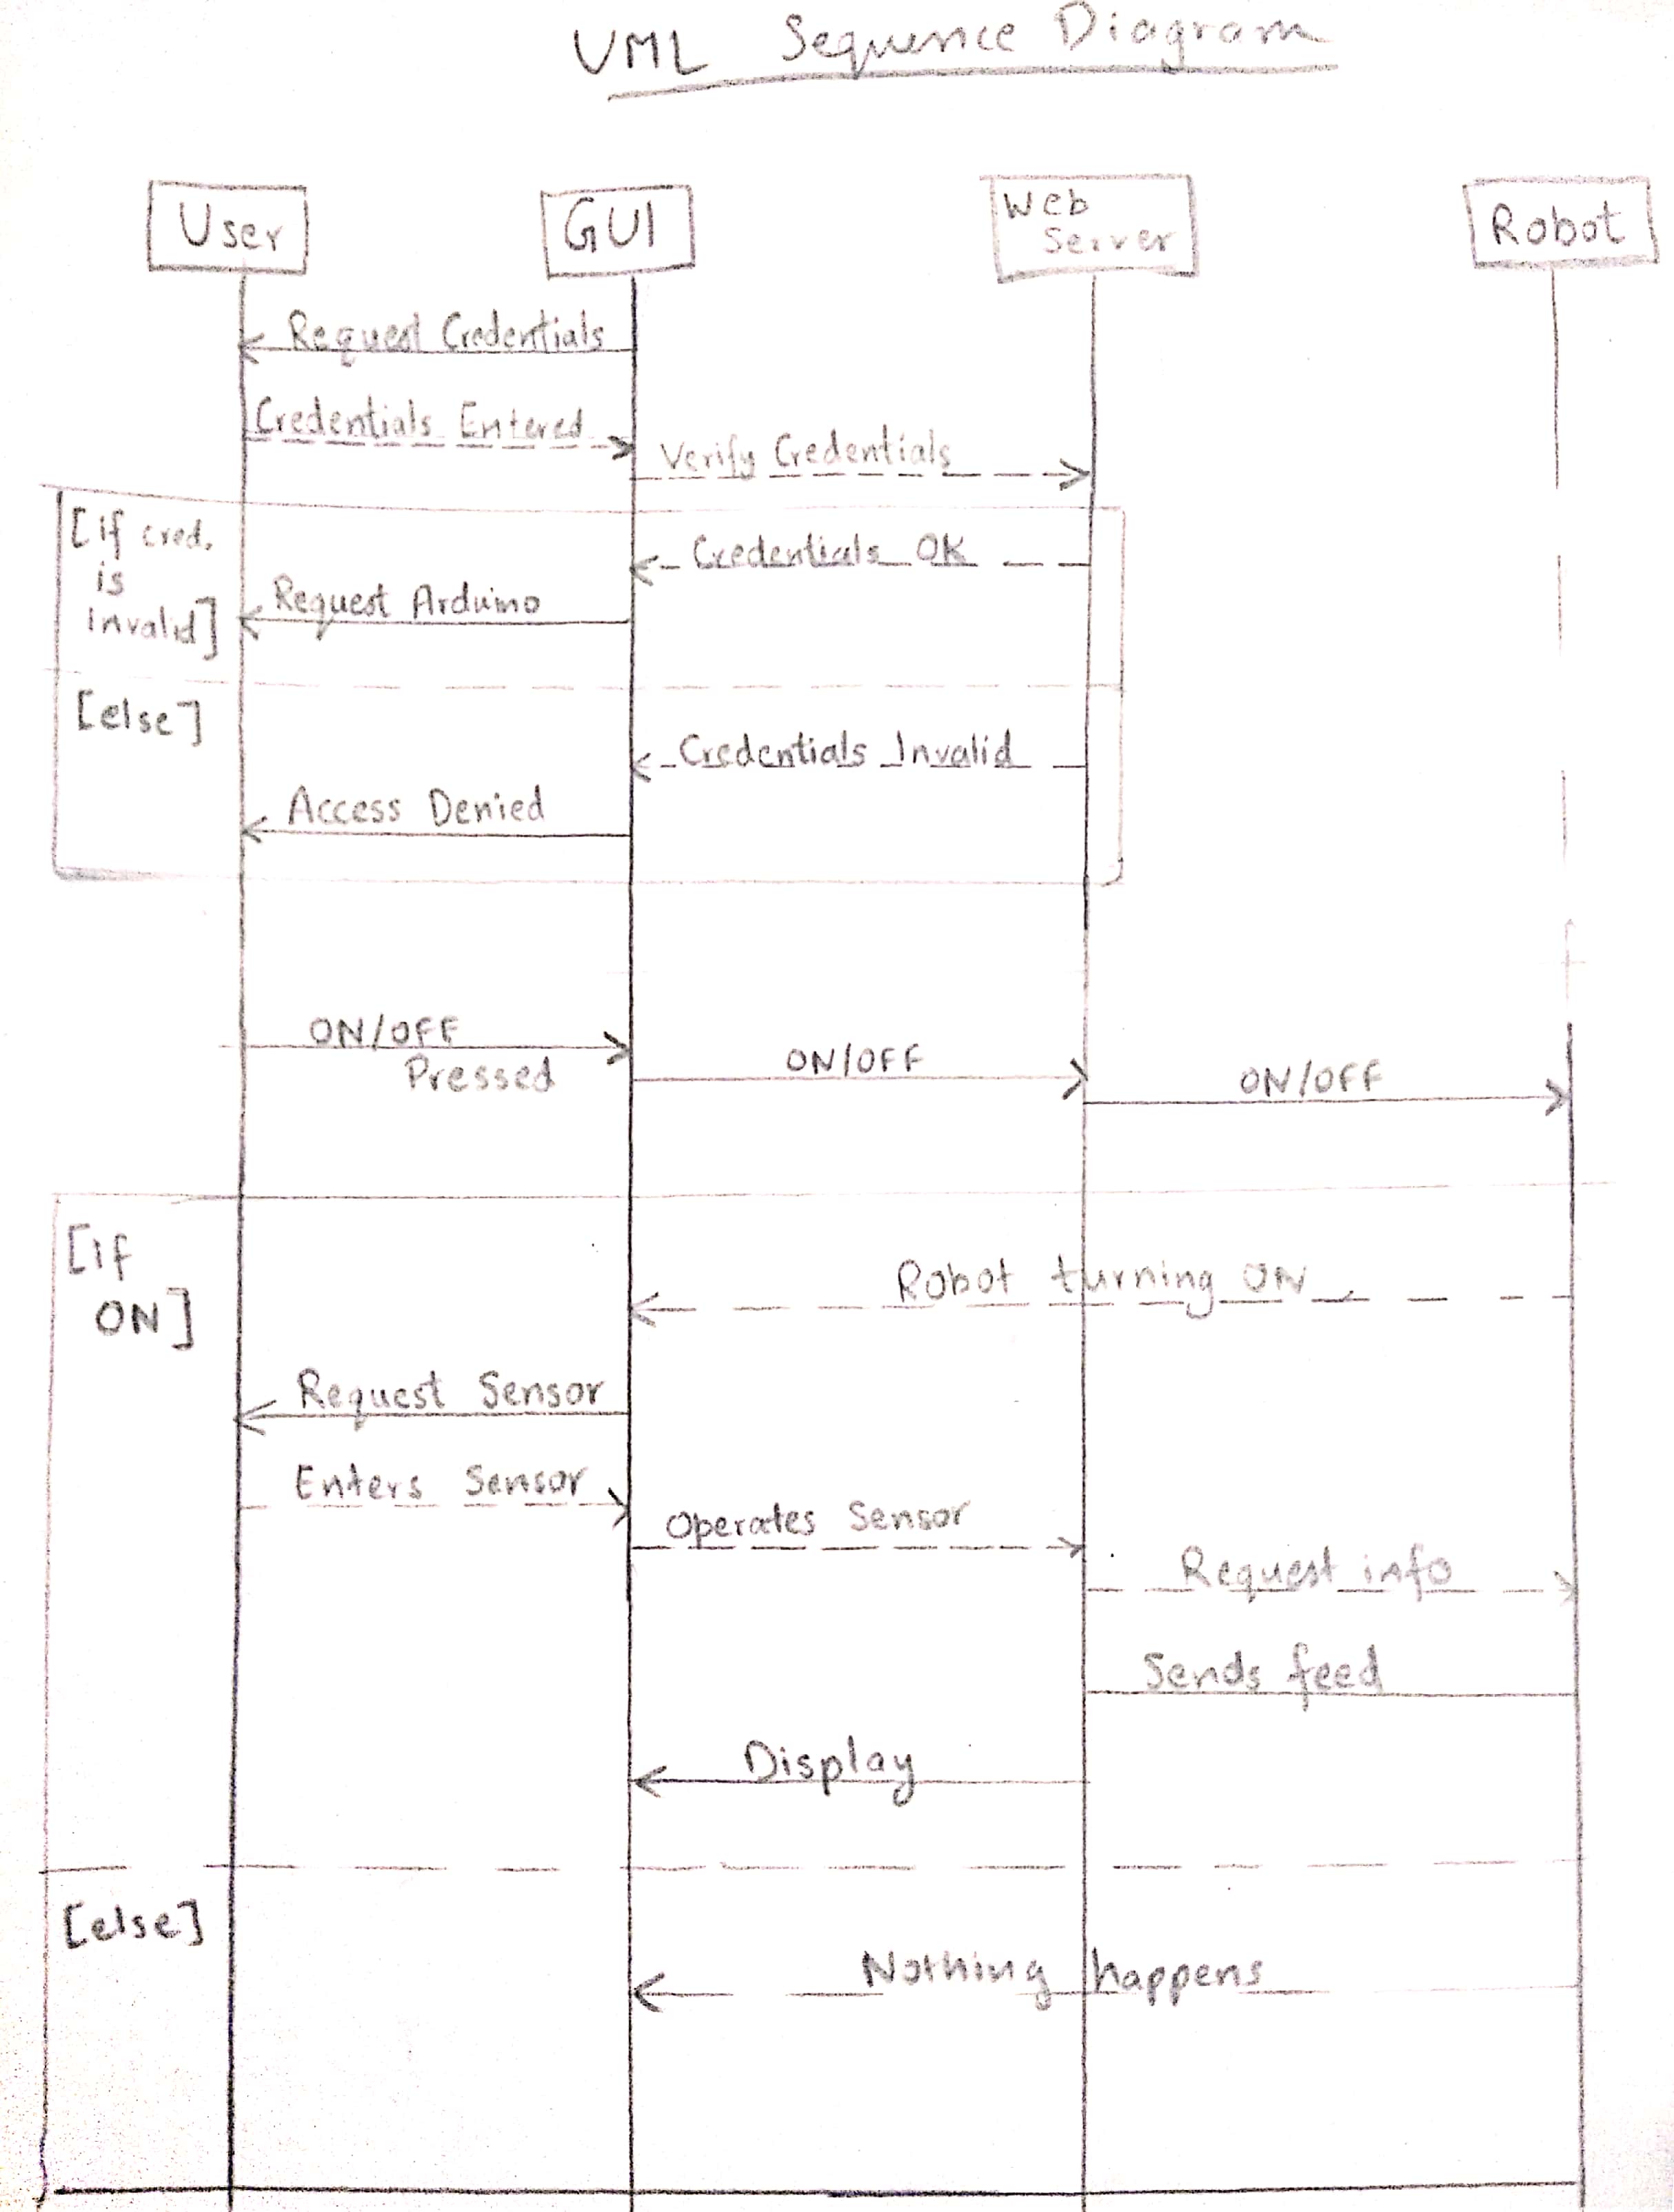 UML Sequence Diagram
User
GUI
Web
Server
Robot
Request Credentials
Credentials Entered
Verify Credentials
[if cred.
is
invalid]
Credentials OK
Request Arduino
[else]
Credentials Invalid
Access Denied
ON/OFF
Pressed
ON/OFF
ON/OFF
[if
ON]
Robot turning ON
Request Sensor
Enters Sensor
Operates Sensor
Request info
Sends feed
Display
[else]
Nothing happens